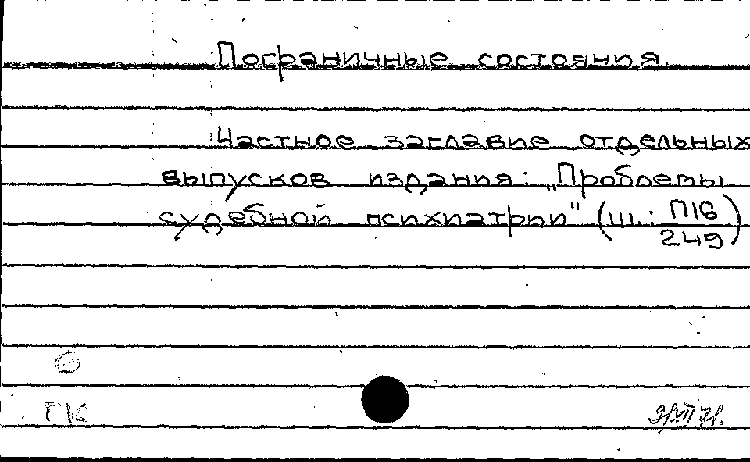 Пограничные состояния.
Частное заглавие отдельных
выпусков издания: „Проблемы
судебной психиатрии" (ш.: П16
249)
ГК